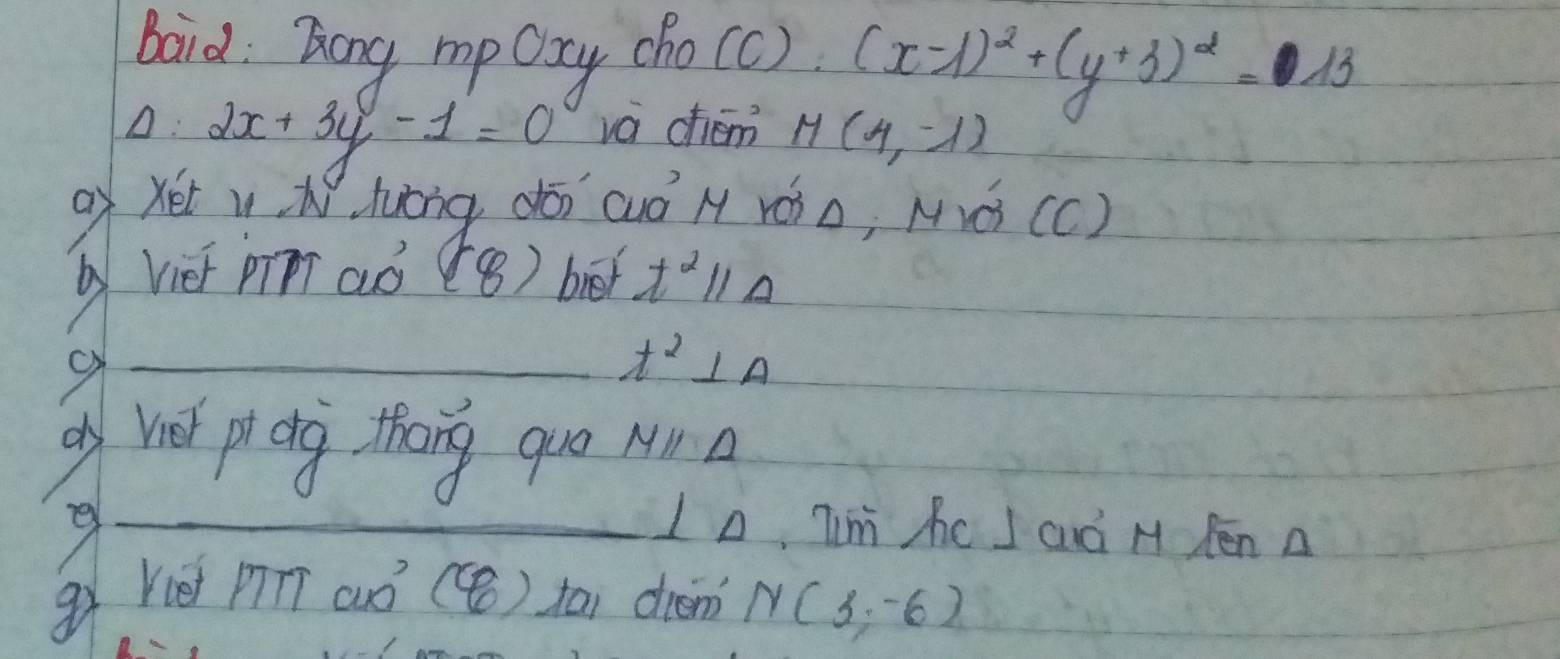 Bài 2: Trong mp Oxy cho (C): (x-1)² + (y+3)² = 13
Δ: 2x + 3y - 1 = 0 và điểm M(4, -1)
a) Xét vị trí tương đối của M với Δ, M với (C)
b) Viết PTTT của (C) biết t² // Δ
c) ____________ t² ⊥ Δ
d) Viết pt đg thẳng qua M // Δ
e) ____________ ⊥ Δ. Tìm hc ⊥ của M lên Δ
g) Viết PTTT của (C) tại điểm N(3; -6)